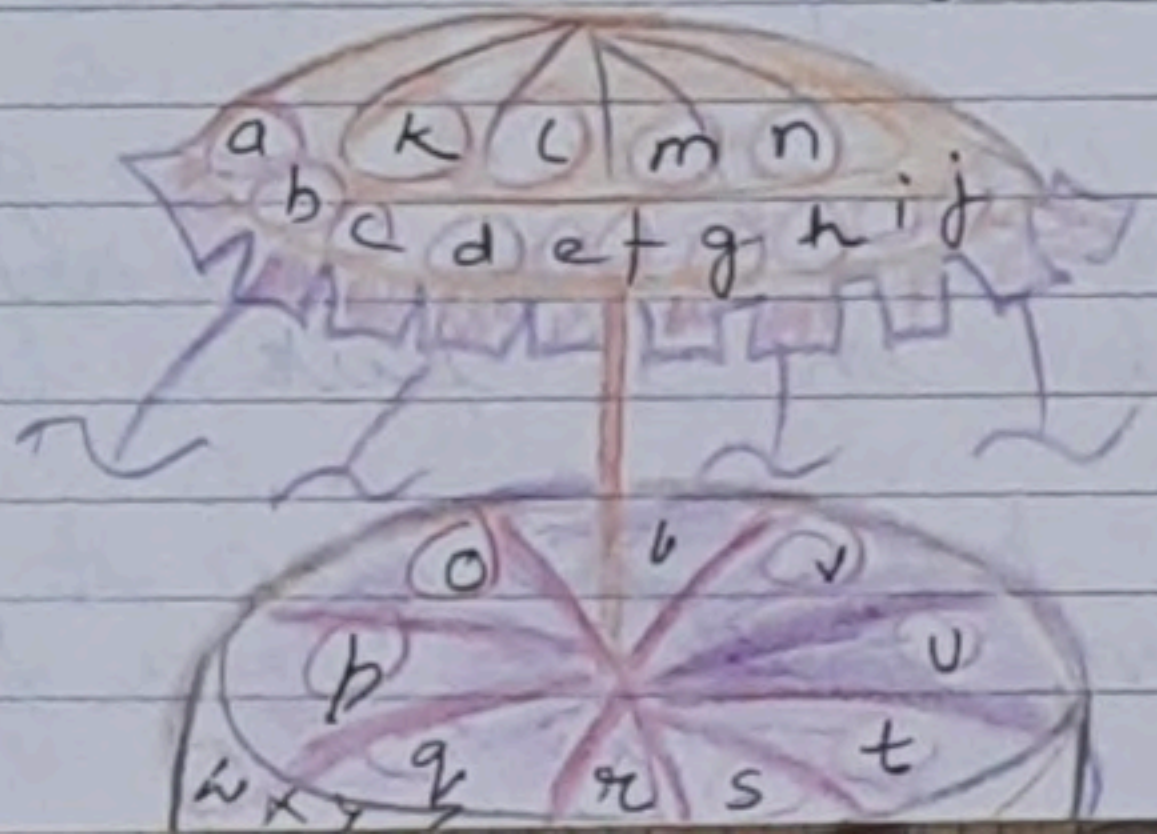 a k l m n
b c d e f g h i j
o v
p u
q r s t
w x y